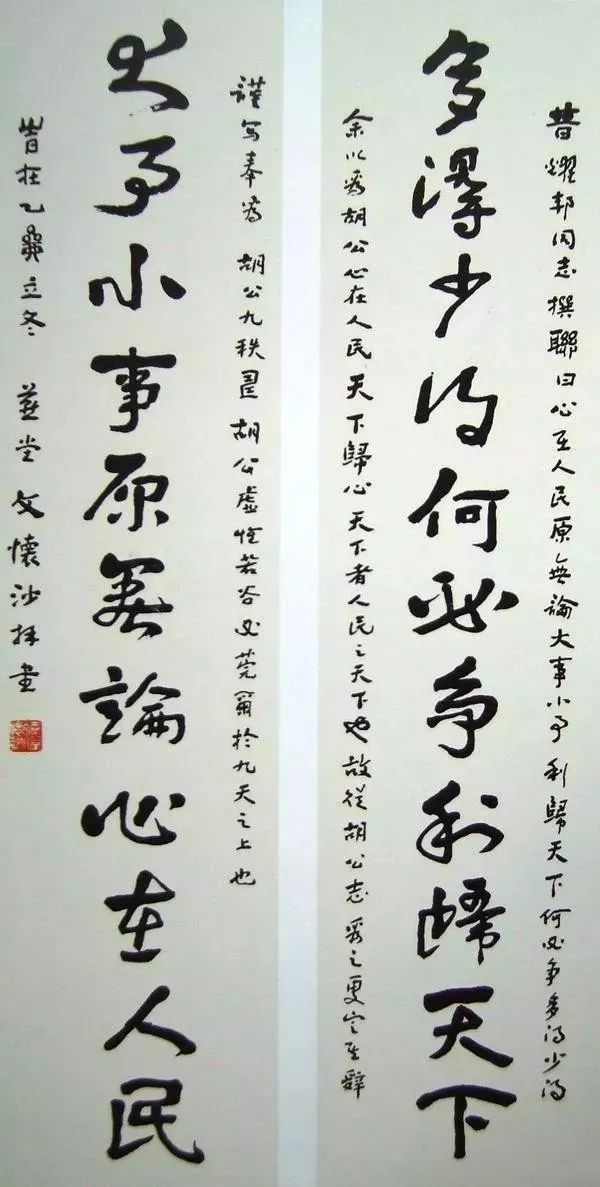 昔耀邦同志撰聯曰心在人民原無論大事小事利歸天下何必爭多得少得
多得少得何必争利歸天下
余以為胡公心在人民天下歸心天下者人民之天下也故從胡公志為之更定其辭
謹写奉為 胡公九秩 胡公虛怀若谷必莞爾於九天之上也
大事小事原無論心在人民
旹在乙酉立冬 燕堂文懷沙拜書